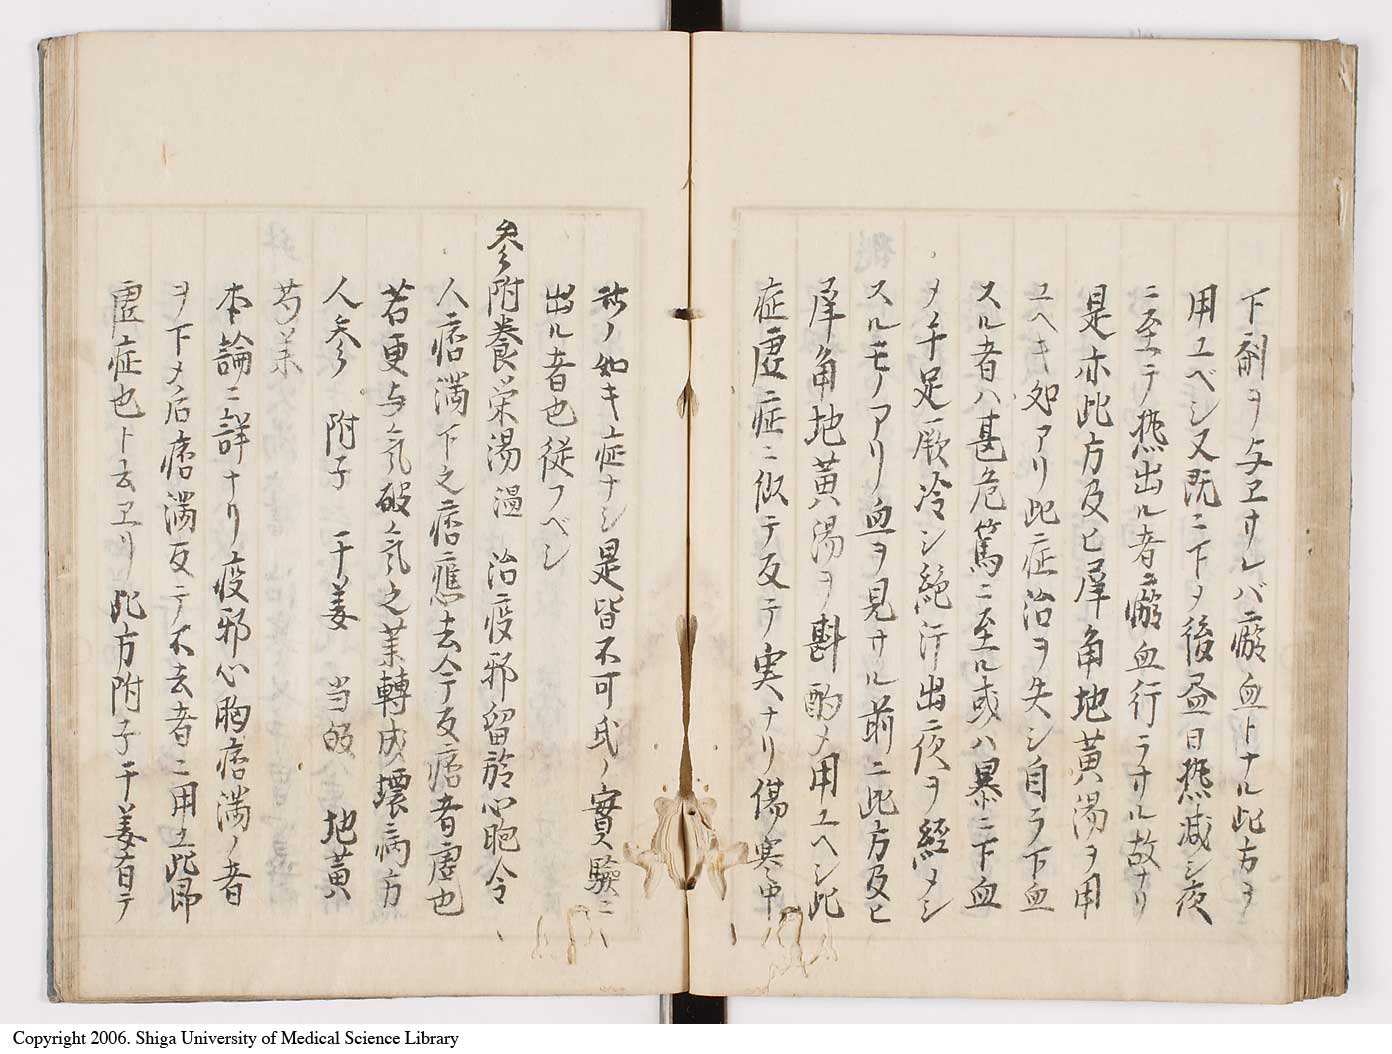 下剤ヲ与ヱサレバ瘀血トナル此方ヲ
用ユベシ又既ニ下メ後昼日熱减シ夜
ニ至テ熱出ル者ニ瘀血行ラサル故ナリ
是亦此方及ヒ犀角地黄湯ヲ用
ユヘキ処アリ此症治ヲ失シ自ラ下血
スル者ハ甚危篤ニ至ル或ハ暴ニ下血
メ手足厥冷シ絶汗出夜ヲ経メシ
スルモノアリ血ヲ見サル前ニ此方及ヒ
犀角地黄湯ヲ斟酌メ用ユヘシ此
症虚症ニ似テ反テ実ナリ傷寒中
此ノ如キ症ナシ是皆不可氏ノ實験ニ
出ル者也従フベシ
参附養栄湯 温 治疫邪留於心胞令
人痞満下之痞應去今反痞者虚也
若更与氣破氣之薬轉成壊病方
人参 附子 干姜 当皈 地黄
芍薬
本論ニ詳ナリ疫邪心胸痞満ノ者
ヲ下メ后痞満反テ不去者ニ用ユ此即
虚症也ト云ヱリ此方附子干姜有テ
Copyright 2006. Shiga University of Medical Science Library